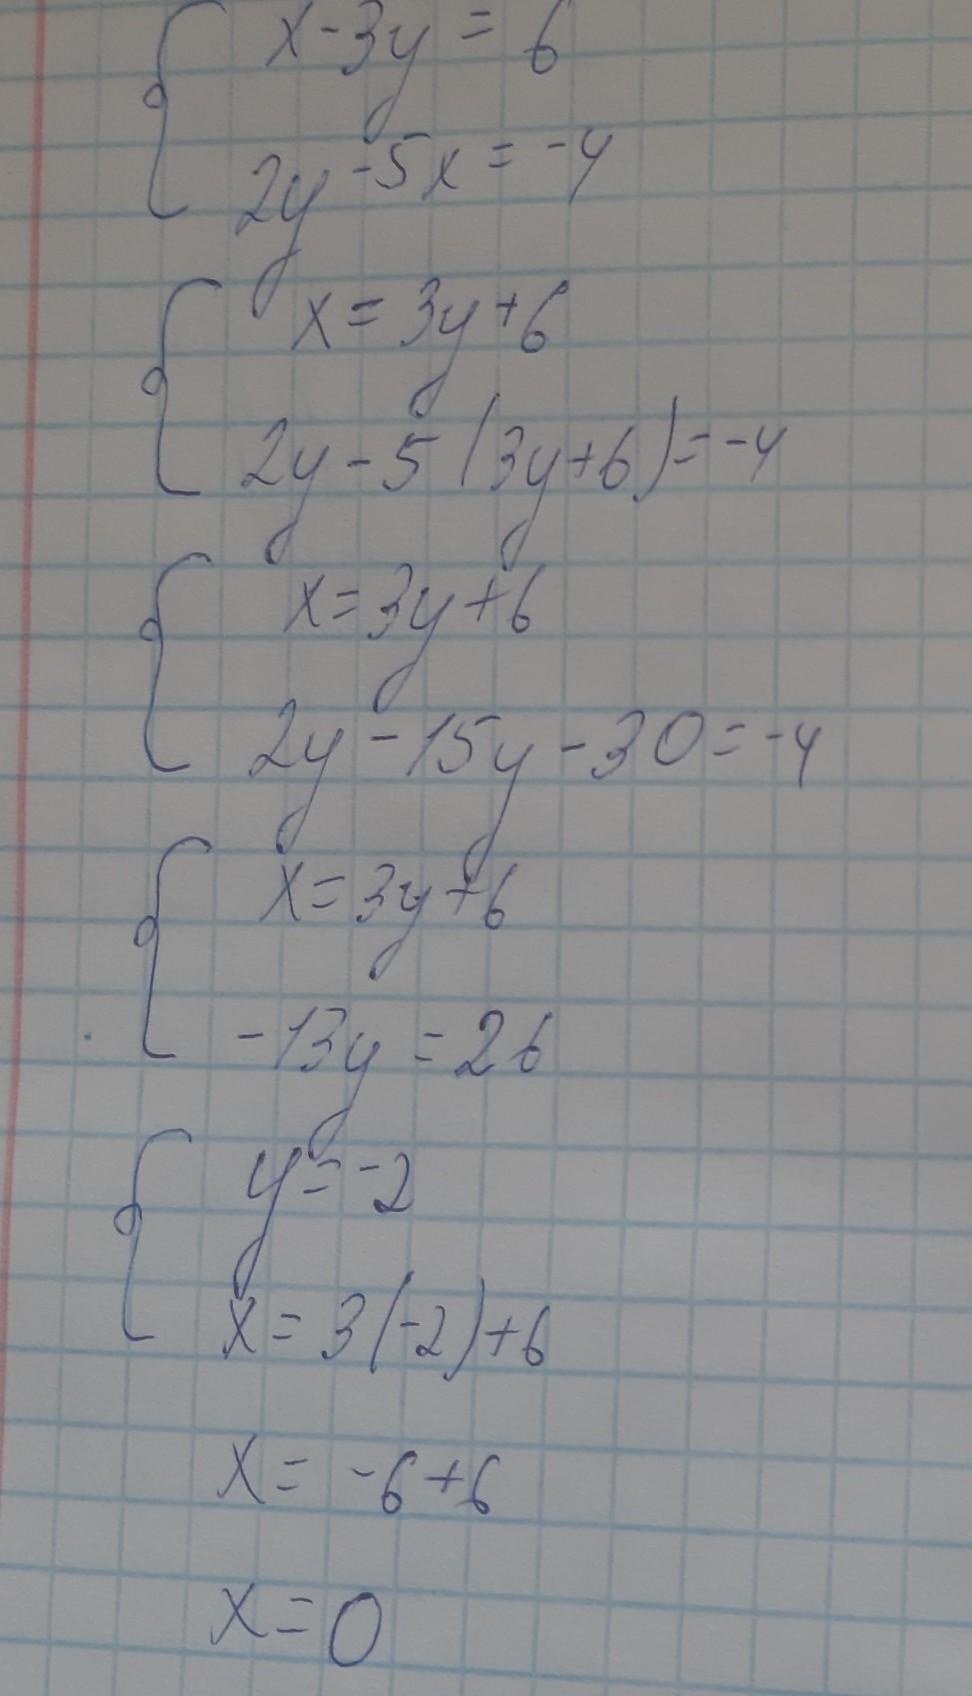 x-3y = 6
2y-5x = -4
x = 3y+6
2y-5(3y+6)=-4
x=3y+6
2y-15y-30=-4
x=3y+6
-13y=26
y=-2
x=3(-2)+6
x= -6+6
x=0